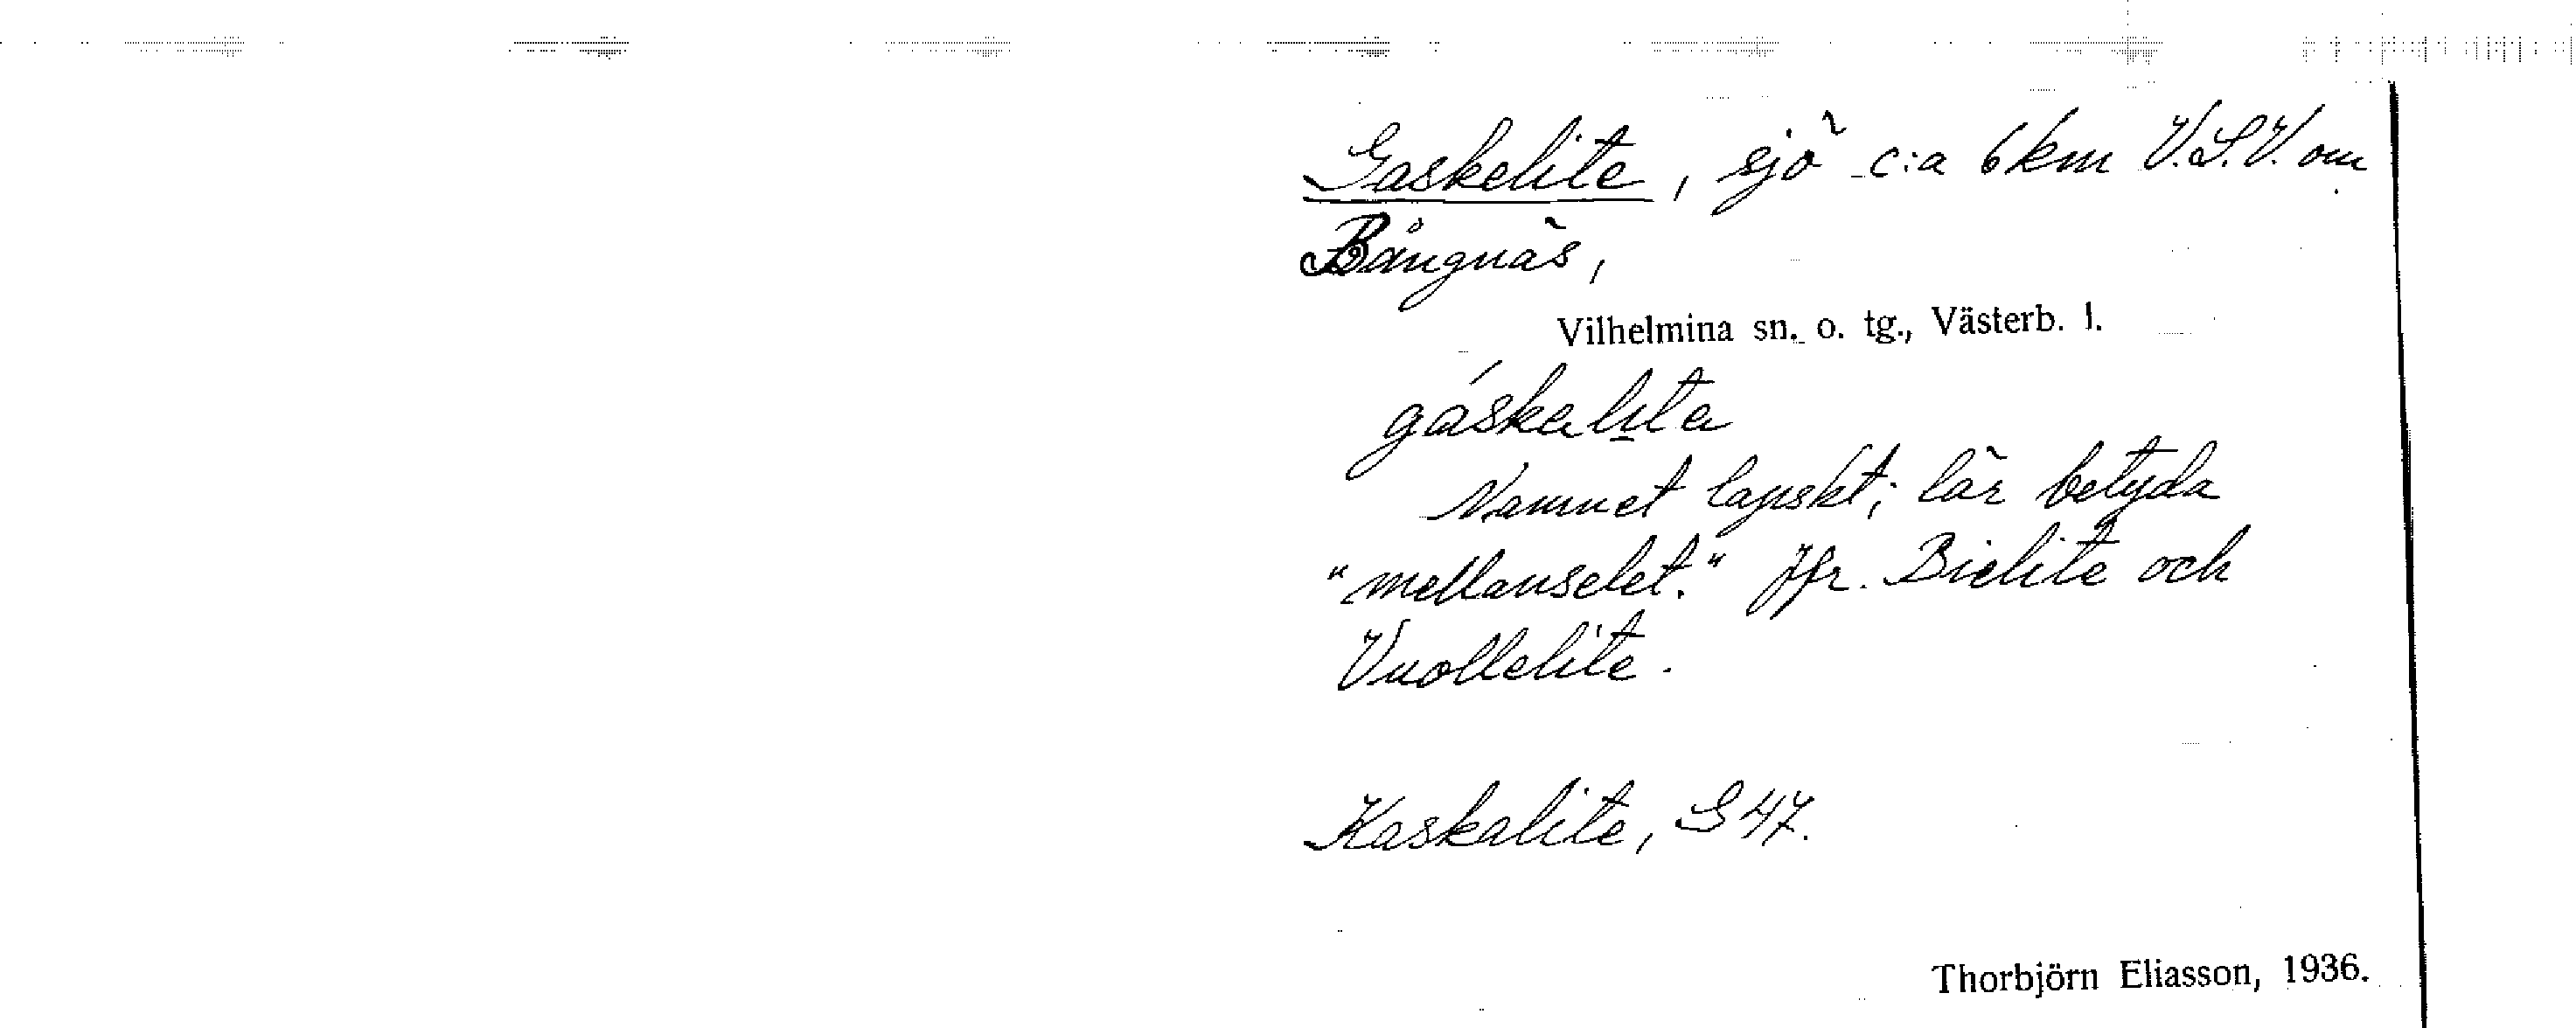 Gaskelite, sjö c:a 6 km V.S.V. om
Bångnäs,
Vilhelmina sn. o. tg., Västerb. l.
gáskalı̲ta
Namnet lapskt; lär betyda
"mellanselet." Jfr. Bielite och
Vuollelite.
Kaskalite, S 47.
Thorbjörn Eliasson, 1936.